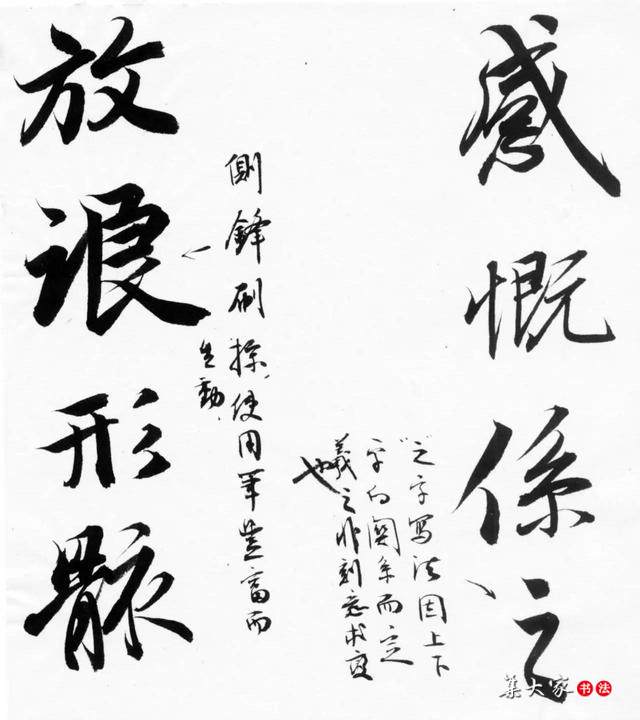 感慨係之
"之"字写法因上下
字的関系而定
羲之非刻意求变
也
放浪形骸
側鋒刷掠，使用筆豊富而
生動
集大家书法